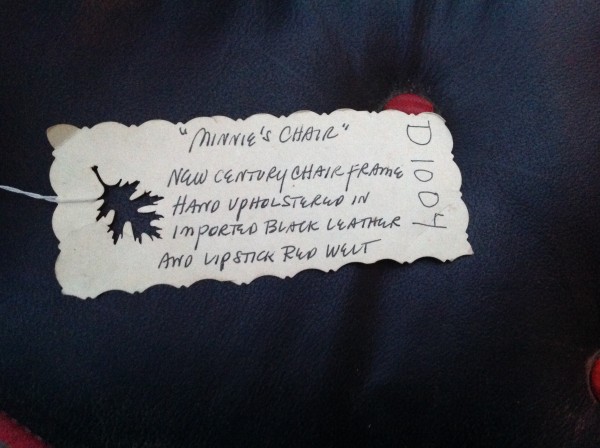 "MINNIE'S CHAIR"
NEW CENTURY CHAIR FRAME
HAND UPHOLSTERED IN
IMPORTED BLACK LEATHER
AND LIPSTICK RED WELT
D1004